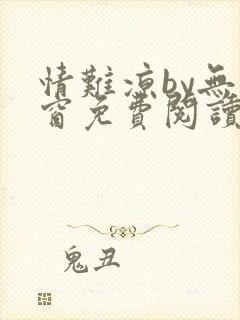 情難涼by無
窗免費閱讀
鬼丑